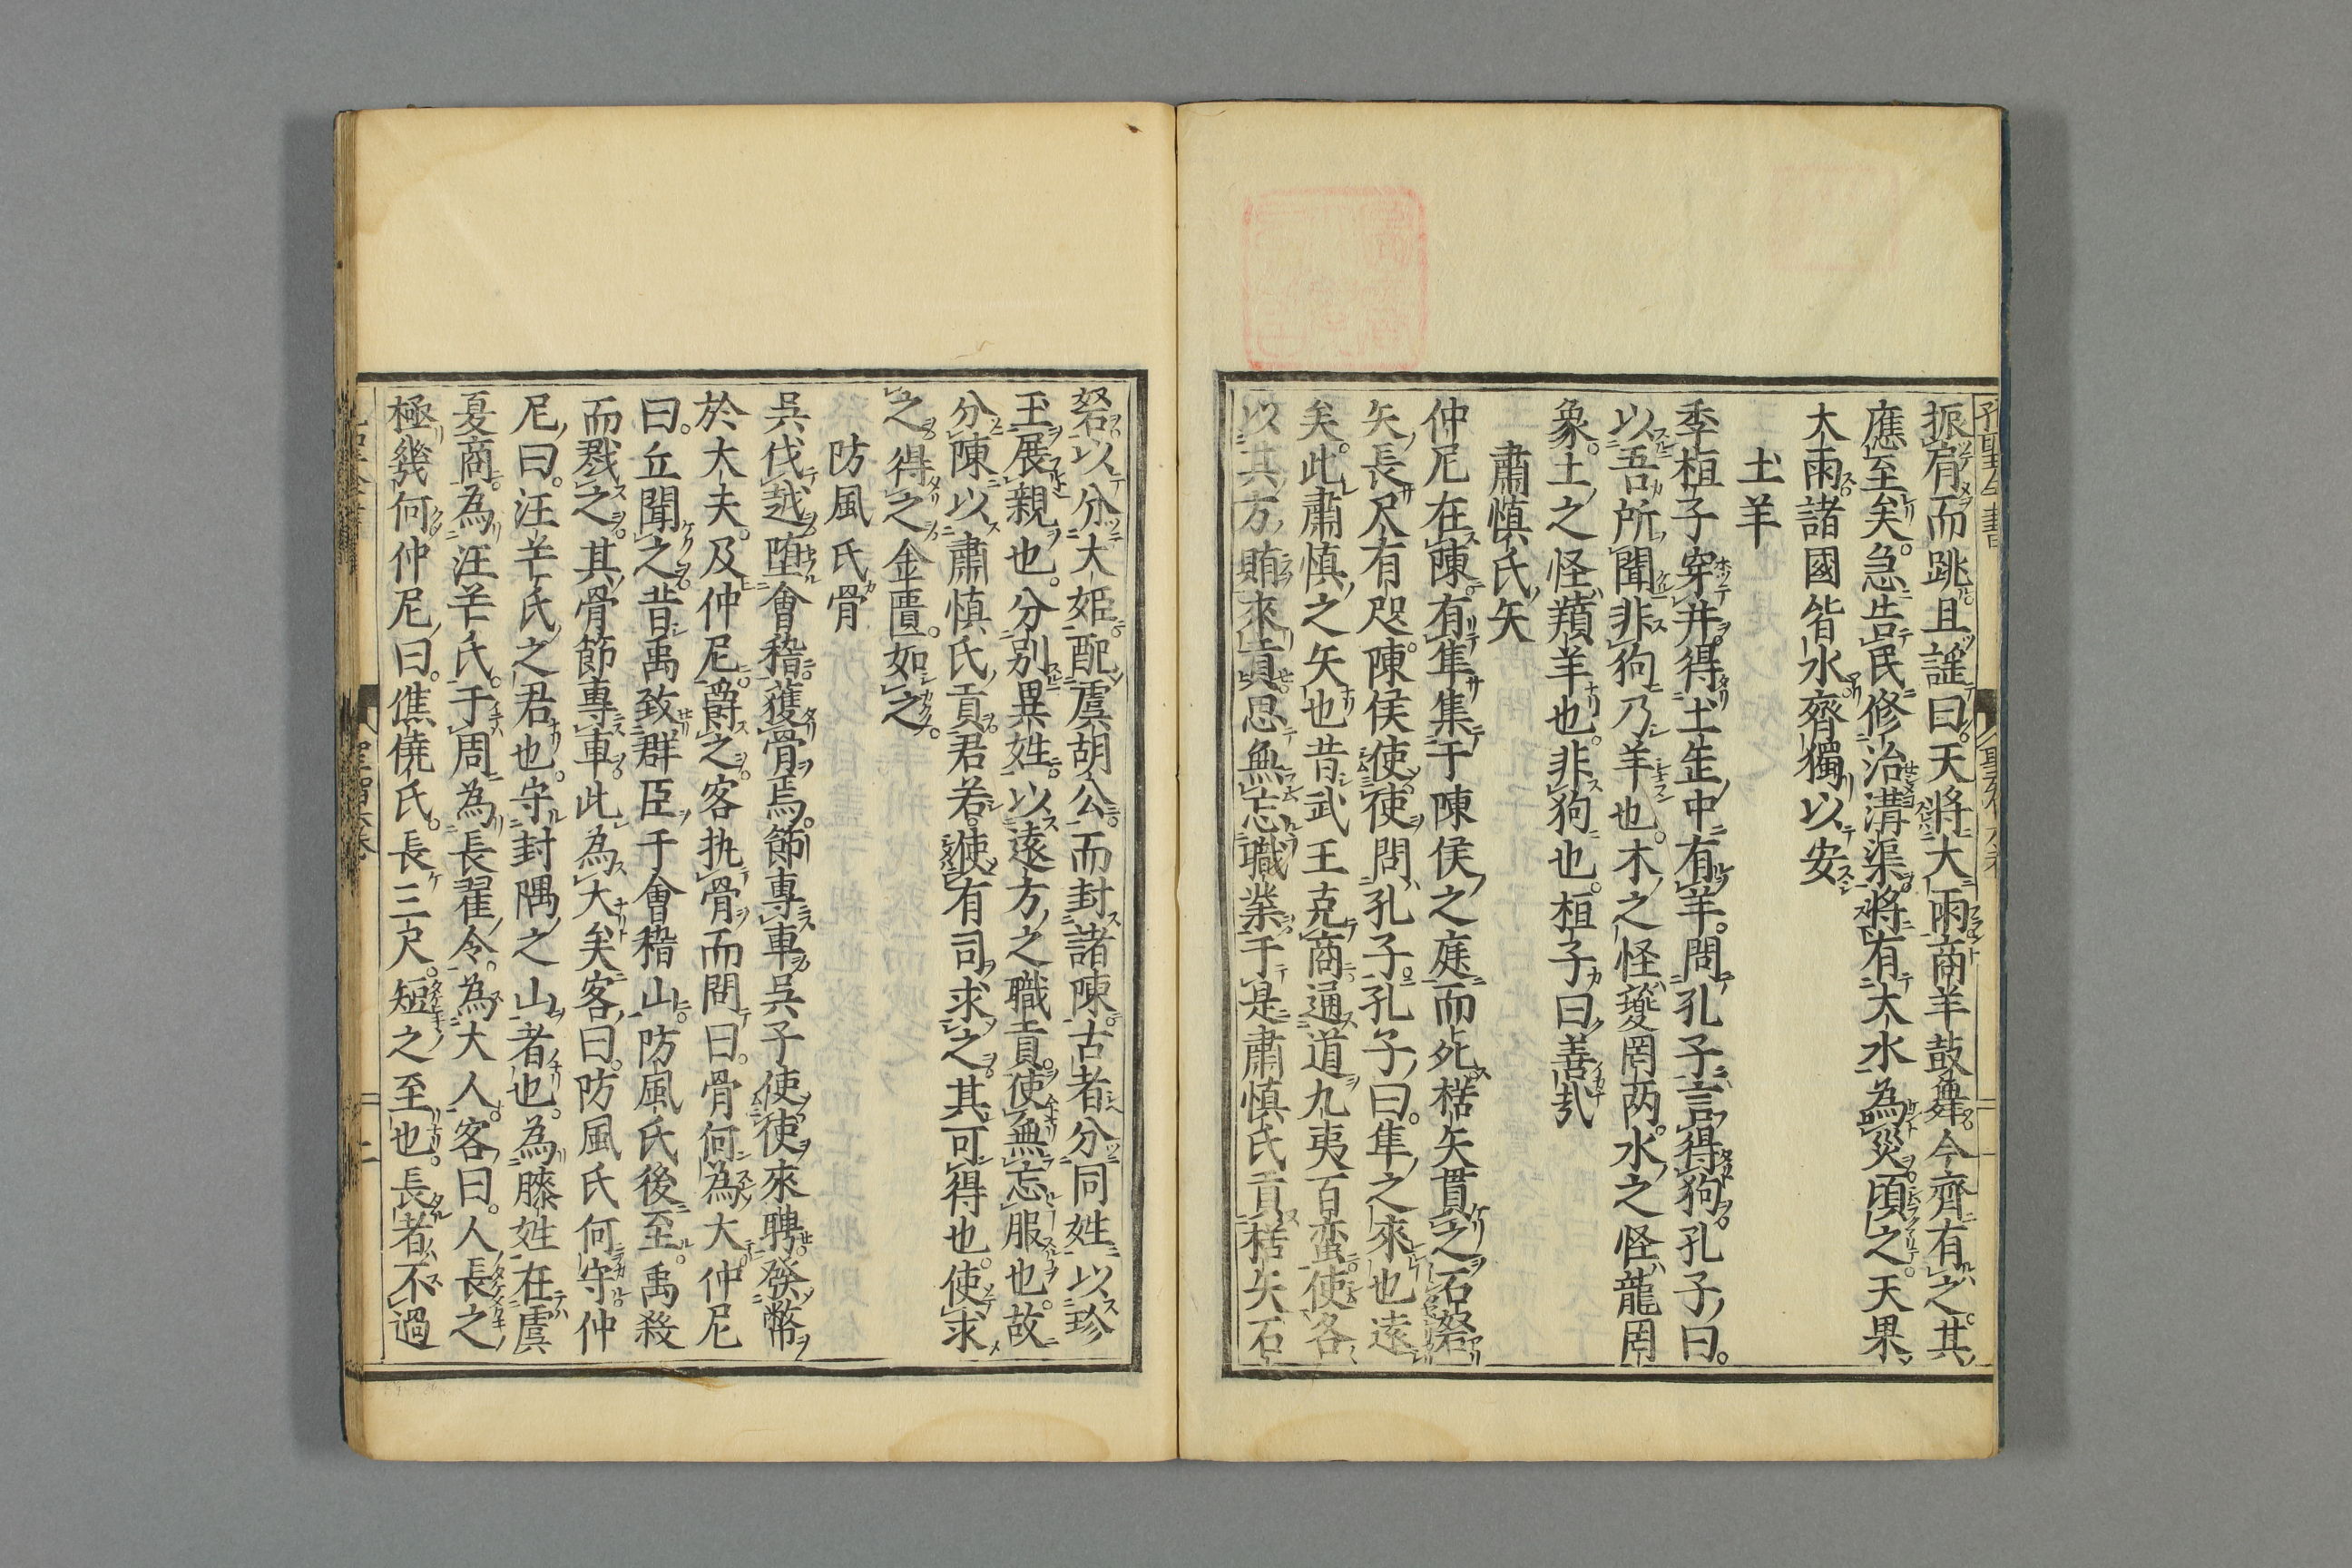 振肩而跳且謡曰天將大雨商羊鼓舞今齊有之其
應至矣急告民修治溝渠將有大水為災頃之天果
大雨諸國皆水齊獨以安
土羊
季桓子穿井得土缶中有羊問孔子言得狗孔子曰
以吾所聞非狗乃羊也木之怪夔罔两水之怪龍罔
象土之怪羵羊也非狗也桓子曰善哉
肅慎氏矢
仲尼在陳有隼集于陳侯之庭而死楛矢貫之石砮
矢長尺有咫陳侯使使問孔子孔子曰隼之來也遠
矣此肅慎之矢也昔武王克商通道九夷百蛮使各
以其方賄來貢思無忘職業于是肅慎氏貢楛矢石
砮以分大姫配虞胡公而封諸陳古者分同姓以珍
玉展親也分別異姓以遠方之職貢使無忘服也故
分陳以肅慎氏貢君若使有司求之其可得也使求
之得之金匱如之
防風氏骨
呉伐越堕會稽獲骨焉節專車呉子使使來聘發幣
於大夫及仲尼爵之客執骨而問曰骨何為大仲尼
曰丘聞之昔禹致群臣于會稽山防風氏後至禹殺
而戮之其骨節專車此為大矣客曰防風氏何守仲
尼曰汪芒氏之君也守封隅之山者也為膝姓在虞
夏商為汪芒氏于周為長翟今為大人客曰人長之
極幾何仲尼曰僬僥氏長三尺短之至也長者不過